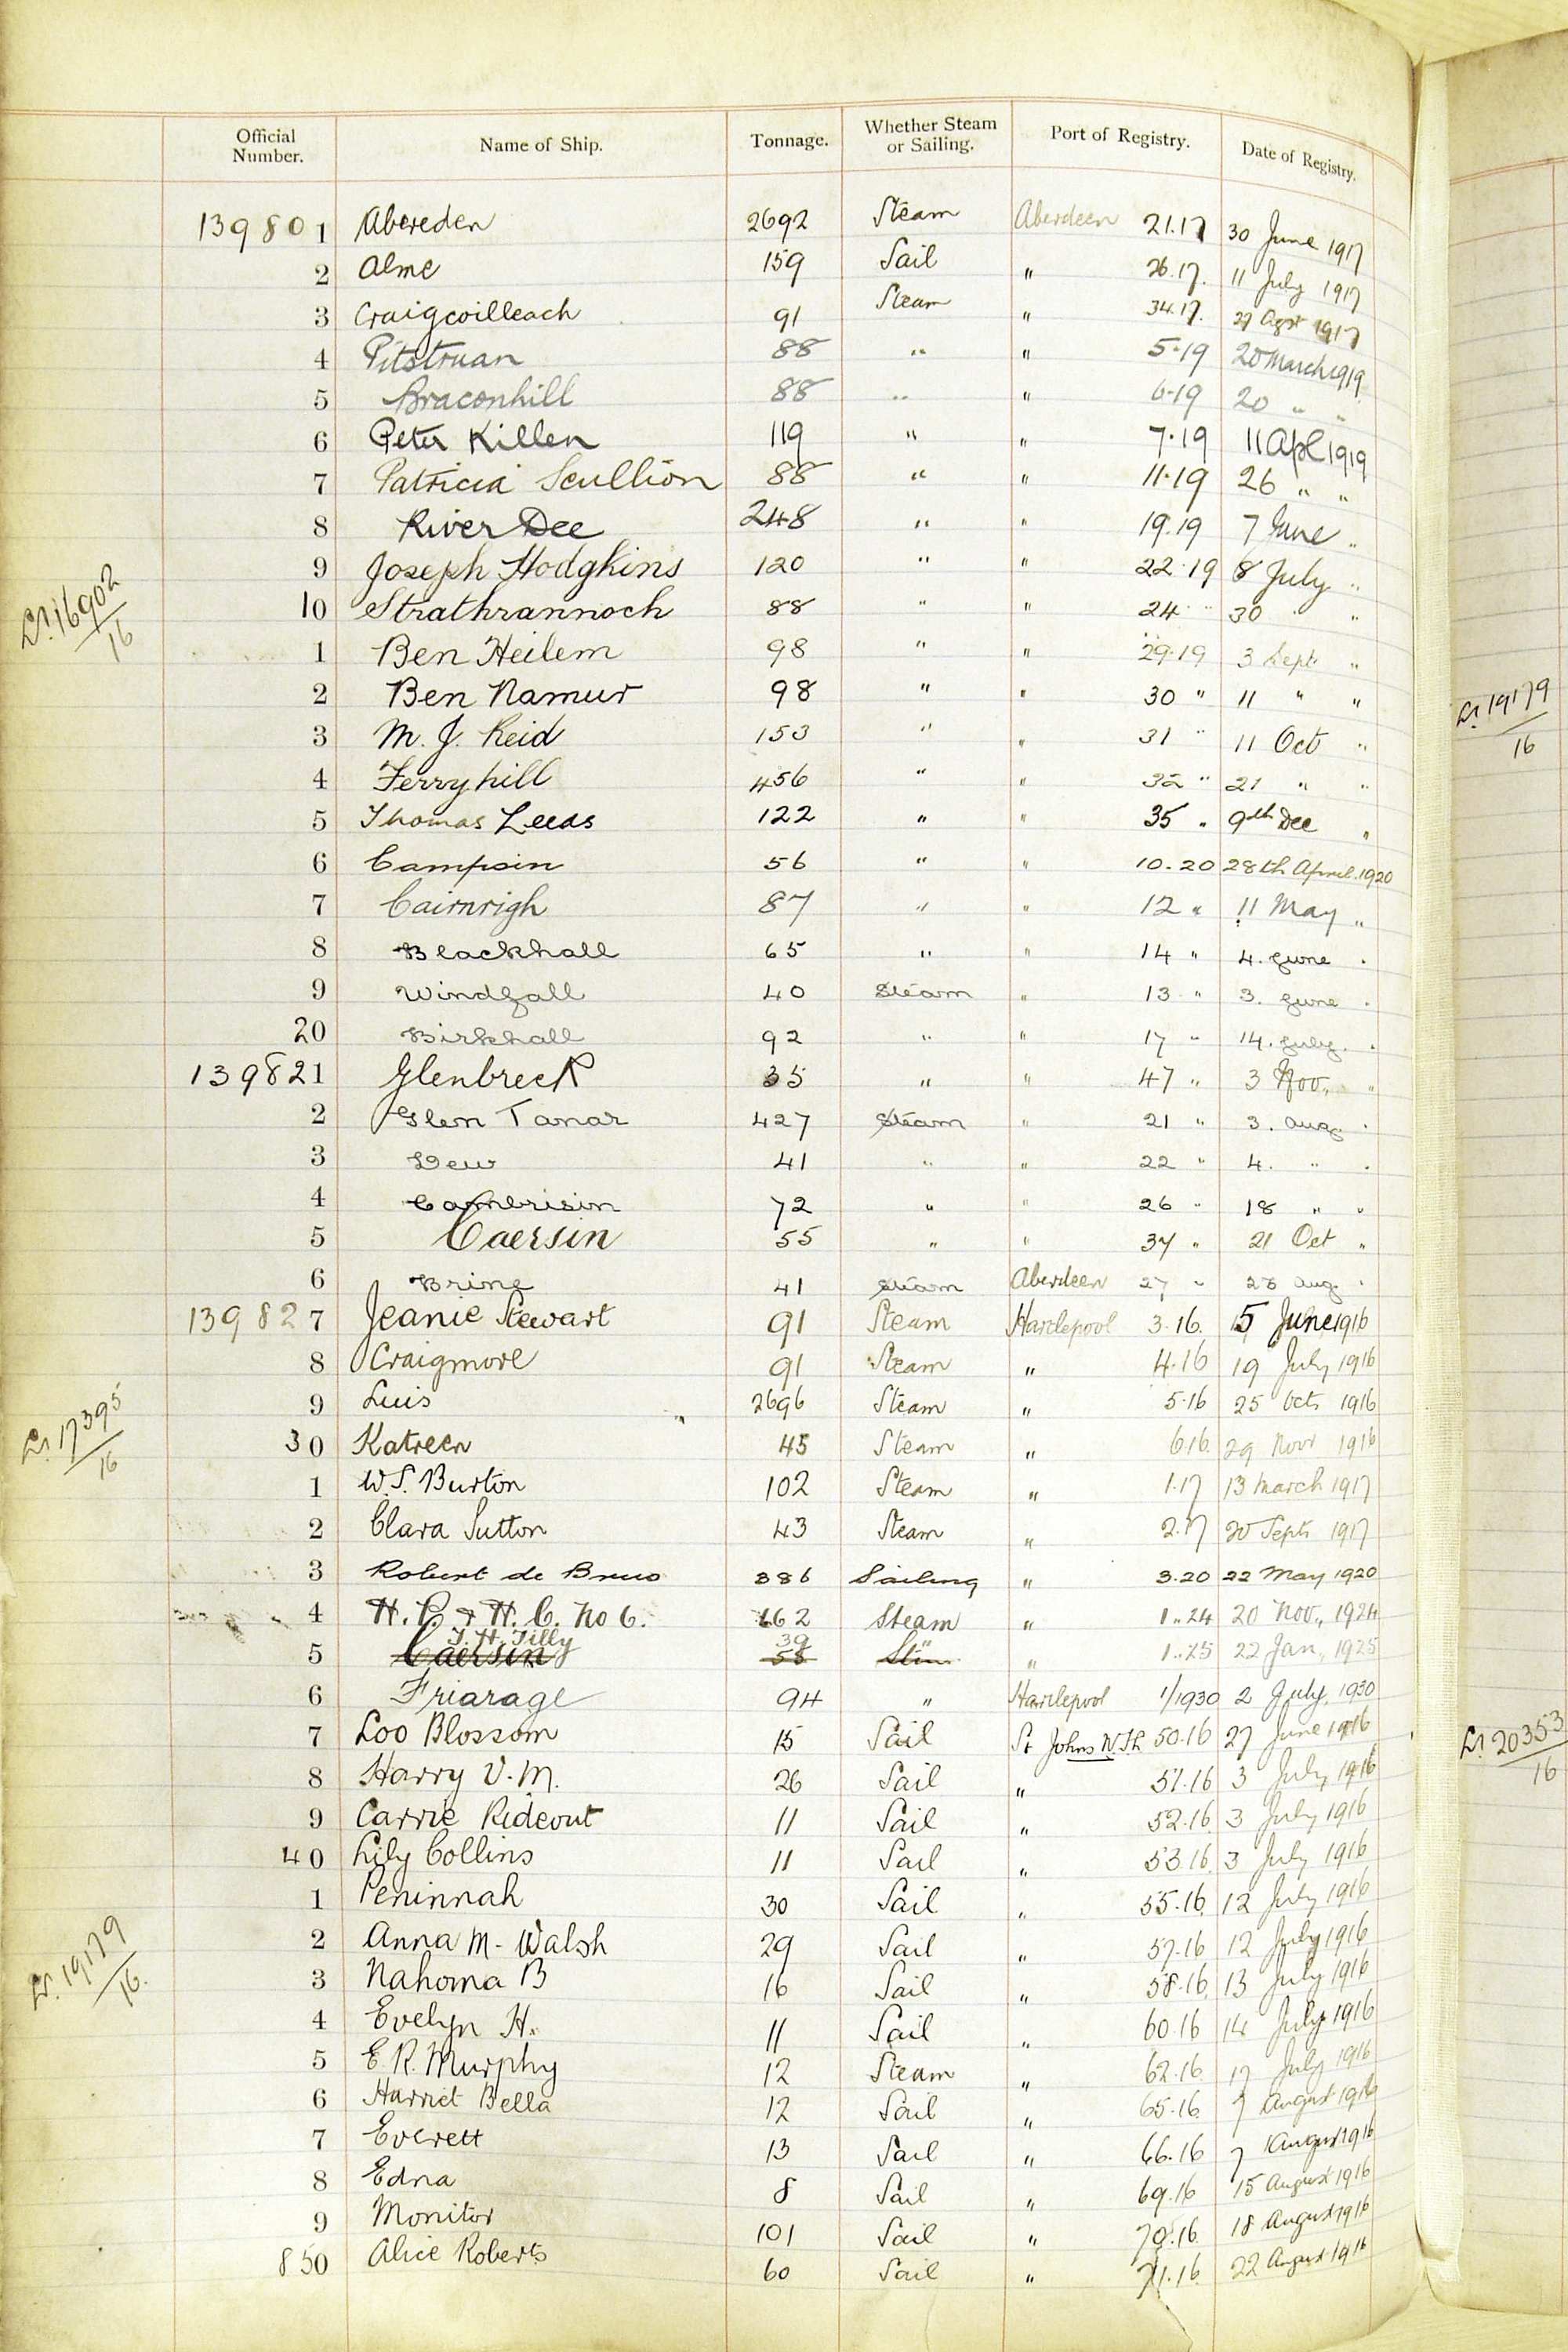 Official Number. Name of Ship. Tonnage. Whether Steam or Sailing. Port of Registry. Date of Registry.
139801 Abereden 2692 Steam Aberdeen 21.17 30 June 1917
2 Alme 159 Sail " 26.17. 11 July 1917
3 Craigcoilleach 91 Steam " 34.17. 27 Agst 1917
4 Pitstruan 88 " " 5.19 20 March 1919
5 Braconhill 88 " " 6.19 20 " "
6 Peter Killen 119 " " 7.19 11 Apl 1919
7 Patricia Scullion 88 " " 11.19 26 " "
8 River Dee 248 " " 19.19 7 June "
9 Joseph Hodgkins 120 " " 22.19 8 July "
10 Strathrannoch 88 " " 24 " 30 " "
1 Ben Heilem 98 " " 29.19 3 Sept "
2 Ben Namur 98 " " 30 " 11 " "
3 M. J. Reid 153 " " 31 " 11 Oct "
4 Ferryhill 456 " " 32 " 21 " "
5 Thomas Leeds 122 " " 35 " 9th Dec "
6 Campsin 56 " " 10.20 28th April 1920
7 Cairnrigh 87 " " 12 " 11 May "
8 Blackhall 65 " " 14 " 4. June "
9 Windfall 40 Steam " 13 " 3. June "
20 Birkhall 92 " " 17 " 14. July. "
139821 Glenbreck 35 " " 47 " 3 Nov., "
2 Glen Tanar 427 Steam " 21 " 3. Aug. "
3 Dew 41 " " 22 " 4. " "
4 Cambrisin 72 " " 26 " 18 " "
5 Caersin 55 " " 37 " 21 Oct "
6 Brine 41 Steam Aberdeen 27 " 28 Aug. "
139827 Jeanie Stewart 91 Steam Hartlepool 3.16. 15 June 1916
8 Craigmore 91 Steam " 4.16 19 July 1916
9 Luis 2696 Steam " 5.16 25 Oct. 1916
30 Katreen 45 Steam " 6.16. 29 Novr 1916
1 W.S. Burton 102 Steam " 1.17 13 March 1917
2 Clara Sutton 43 Steam " 2.17 20 Septr 1917
3 Robert de Brus 386 Sailing " 3.20 22 May 1920
4 H. P. & H. C. No 6. 662 Steam " 1..24 20 Nov., 1924
T. H. Tilly 39 "
5 Caersin 55 Stm " 1..25 22 Jan, 1925
6 Friarage 94 " Hartlepool 1/1930 2 July, 1930
7 Loo Blossom 15 Sail St Johns N.F.L. 50.16 27 June 1916
8 Harry V. M. 26 Sail " 51.16 3 July 1916
9 Carrie Rideout 11 Sail " 52.16. 3 July 1916
40 Lily Collins 11 Sail " 53.16. 3 July 1916
1 Peninnah 30 Sail " 55.16. 12 July 1916
2 Anna M. Walsh 29 Sail " 57.16 12 July 1916
3 Nahoma B 16 Sail " 58.16. 13 July 1916
4 Evelyn H. 11 Sail " 60.16 14 July 1916
5 E.R. Murphy 12 Steam " 62.16. 17 July 1916
6 Harriet Bella 12 Sail " 65.16. 7 August 1916
7 Everett 13 Sail " 66.16 7 August 1916
8 Edna 8 Sail " 69.16 15 August 1916
9 Monitor 101 Sail " 70.16. 18 August 1916
850 Alice Roberts 60 Sail " 71.16. 22 August 1916
Lr. 16902/16
Lr. 17395/16
Lr. 19179/16.
Lr. 19179/16
Lr. 20353/16